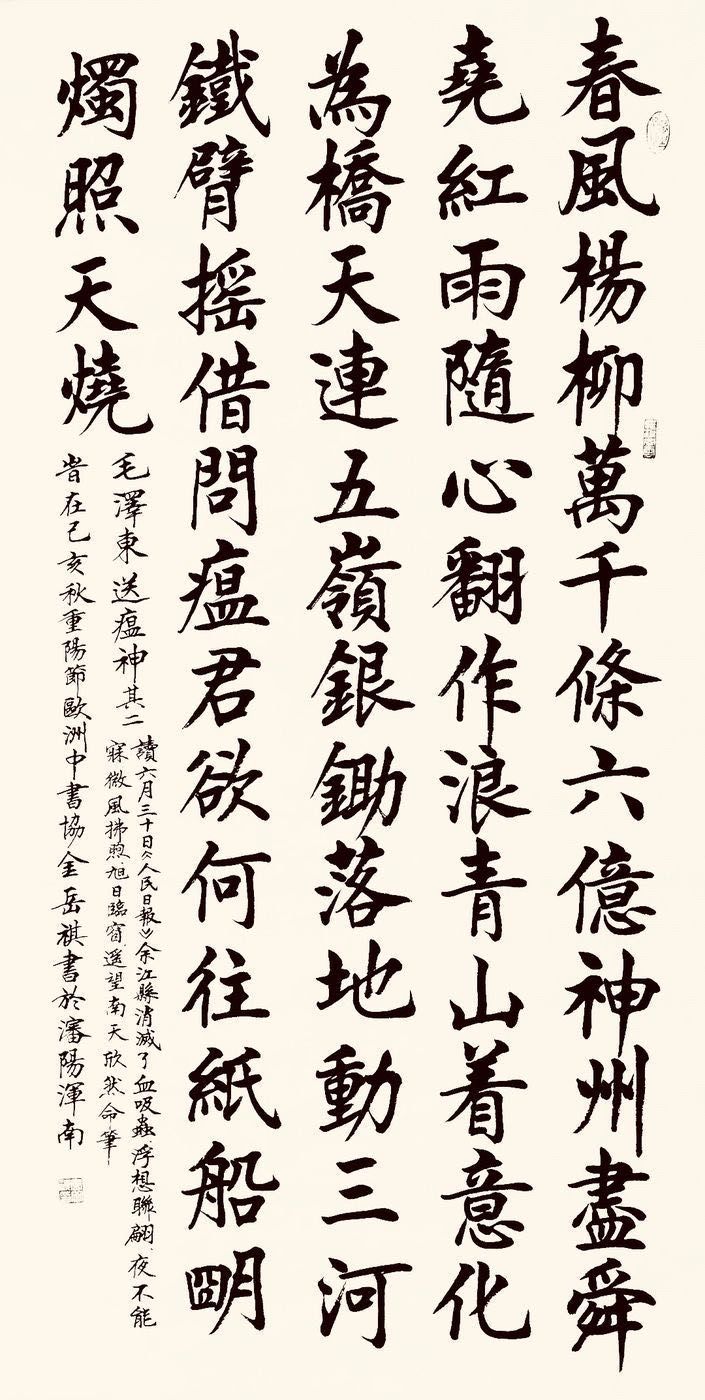 春風楊柳萬千條六億神州盡舜
堯紅雨隨心翻作浪青山着意化
為橋天連五嶺銀鋤落地動三河
鐵臂摇借問瘟君欲何往紙船明
燭照天燒
毛澤東送瘟神其二
讀六月三十日《人民日報》余江縣消滅了血吸蟲浮想聯翩夜不能
寐微風拂煦旭日臨窗遥望南天欣然命筆
旹在己亥秋重陽節歐洲中書協金岳祺書於瀋陽渾南